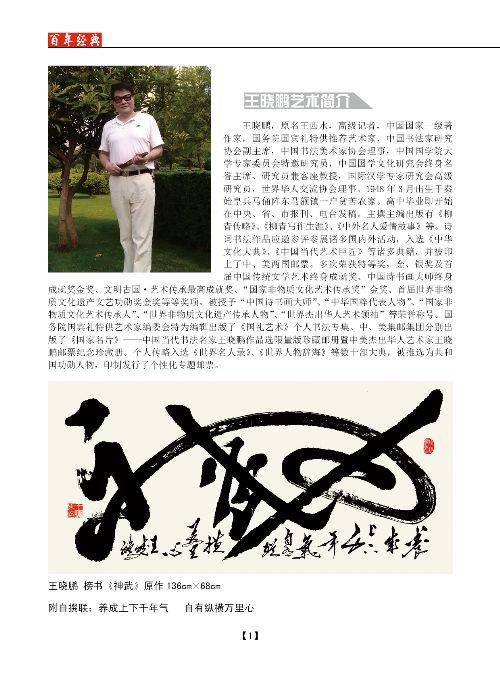 百年经典
王晓鹏艺术简介
王晓鹏，原名王西水，高级记者，中国国家一级著
作家，国务院国宾礼特供推荐艺术家，中国书法家研究
协会副主席，中国书法美术家协会理事，中国国学院大
学专家委员会特邀研究员，中国国学文化研究会终身名
誉主席、研究员兼客座教授，国际汉学专家研究会高级
研究员，世界华人交流协会理事。1948年3月出生于秦
始皇兵马俑阵东马额镇一户贫苦农家。高中毕业即开始
在中央、省、市报刊、电台发稿。主撰主编出版有《柳
青传略》、《柳青写作生涯》、《中外名人爱情故事》等。诗
词书法作品应邀参评参展诸多国内外活动，入选《中华
文化大典》、《中国当代艺术巨匠》等诸多典籍，并被印
上了中、美两国邮票。多次荣获特等奖，金、银奖及首
届中国传统文学艺术终身成就奖、中国诗书画大师终身
成就奖金奖、文明古国·艺术传承最高成就奖、“国家非物质文化艺术传承奖”金奖、首届世界非物
质文化遗产文艺功勋奖金奖等等奖项。被授予“中国诗书画大师”、“中华国粹代表人物”、“国家非
物质文化艺术传承人”、“世界非物质文化遗产传承人物”、“世界杰出华人艺术领袖”等荣誉称号。国
务院国宾礼特供艺术家编委会特为编辑出版了《国礼艺术》个人书法专集、中、美集邮集团分别出
版了《国家名片》——中国当代书法名家王晓鹏作品选限量版珍藏邮册暨中美杰出华人艺术家王晓
鹏邮票纪念珍藏册。个人传略入选《世界名人录》、《世界人物辞海》等数十部大典，被推选为共和
国功勋人物，印制发行了个性化专题邮票。
王晓鹏 榜书《神武》原作 136cm×68cm
附自撰联：养成上下千年气 自有纵横万里心
【1】